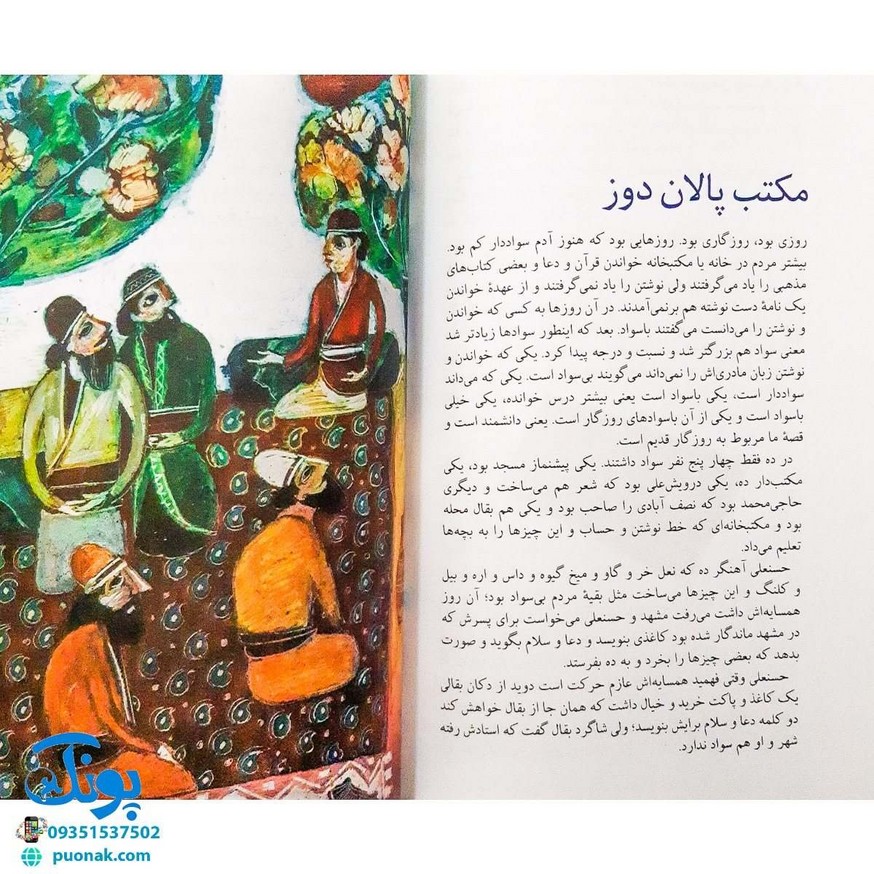 مکتب پالان دوز
روزی بود، روزگاری بود. روزهایی بود که هنوز آدم سواددار کم بود.
بیشتر مردم در خانه یا مکتبخانه خواندن قرآن و دعا و بعضی کتاب‌های
مذهبی را یاد می‌گرفتند ولی نوشتن را یاد نمی‌گرفتند و از عهدهٔ خواندن
یک نامهٔ دست نوشته هم برنمی‌آمدند. در آن روزها به کسی که خواندن
و نوشتن را می‌دانست می‌گفتند باسواد. بعد که اینطور سوادها زیادتر شد
معنی سواد هم بزرگتر شد و نسبت و درجه پیدا کرد. یکی که خواندن و
نوشتن زبان مادری‌اش را نمی‌داند می‌گویند بی‌سواد است. یکی که می‌داند
سواددار است، یکی باسواد است یعنی بیشتر درس خوانده، یکی خیلی
باسواد است و یکی از آن باسوادهای روزگار است. یعنی دانشمند است و
قصهٔ ما مربوط به روزگار قدیم است.
در ده فقط چهار پنج نفر سواد داشتند. یکی پیشنماز مسجد بود، یکی
مکتب‌دار ده، یکی درویش‌علی بود که شعر هم می‌ساخت و دیگری
حاجی‌محمد بود که نصف آبادی را صاحب بود و یکی هم بقال محله
بود و مکتبخانه‌ای که خط نوشتن و حساب و این چیزها را به بچه‌ها
تعلیم می‌داد.
حسنعلی آهنگر ده که نعل خر و گاو و میخ گیوه و داس و اره و بیل
و کلنگ و این چیزها می‌ساخت مثل بقیهٔ مردم بی‌سواد بود؛ آن روز
همسایه‌اش داشت می‌رفت مشهد و حسنعلی می‌خواست برای پسرش که
در مشهد ماندگار شده بود کاغذی بنویسد و دعا و سلام بگوید و صورت
بدهد که بعضی چیزها را بخرد و به ده بفرستد.
حسنعلی وقتی فهمید همسایه‌اش عازم حرکت است دوید از دکان بقالی
یک کاغذ و پاکت خرید و خیال داشت که همان جا از بقال خواهش کند
دو کلمه دعا و سلام برایش بنویسد؛ ولی شاگرد بقال گفت که استادش رفته
شهر و او هم سواد ندارد.
پونک
09351537502
puonak.com